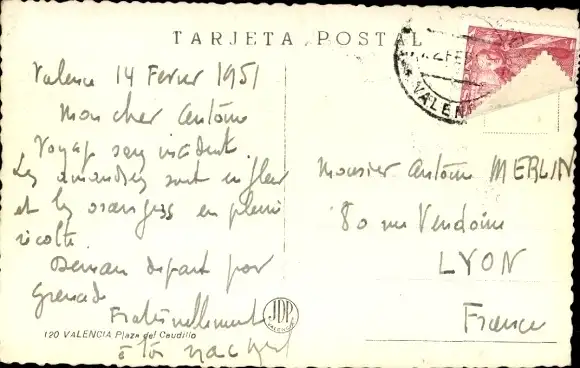 TARJETA POSTAL
VALEN
Valence 14 Fevrier 1951
Mon cher Antoine
Voyage sans incident.
Les amandiers sont en fleur
et les orangers en pleine
récolte.
Demain départ pour
Grenade
Fraternellement
à toi
JDP
VALENCIA
120 VALENCIA Plaza del Caudillo
Monsieur Antoine MERLIN
80 rue Vendôme
LYON
France